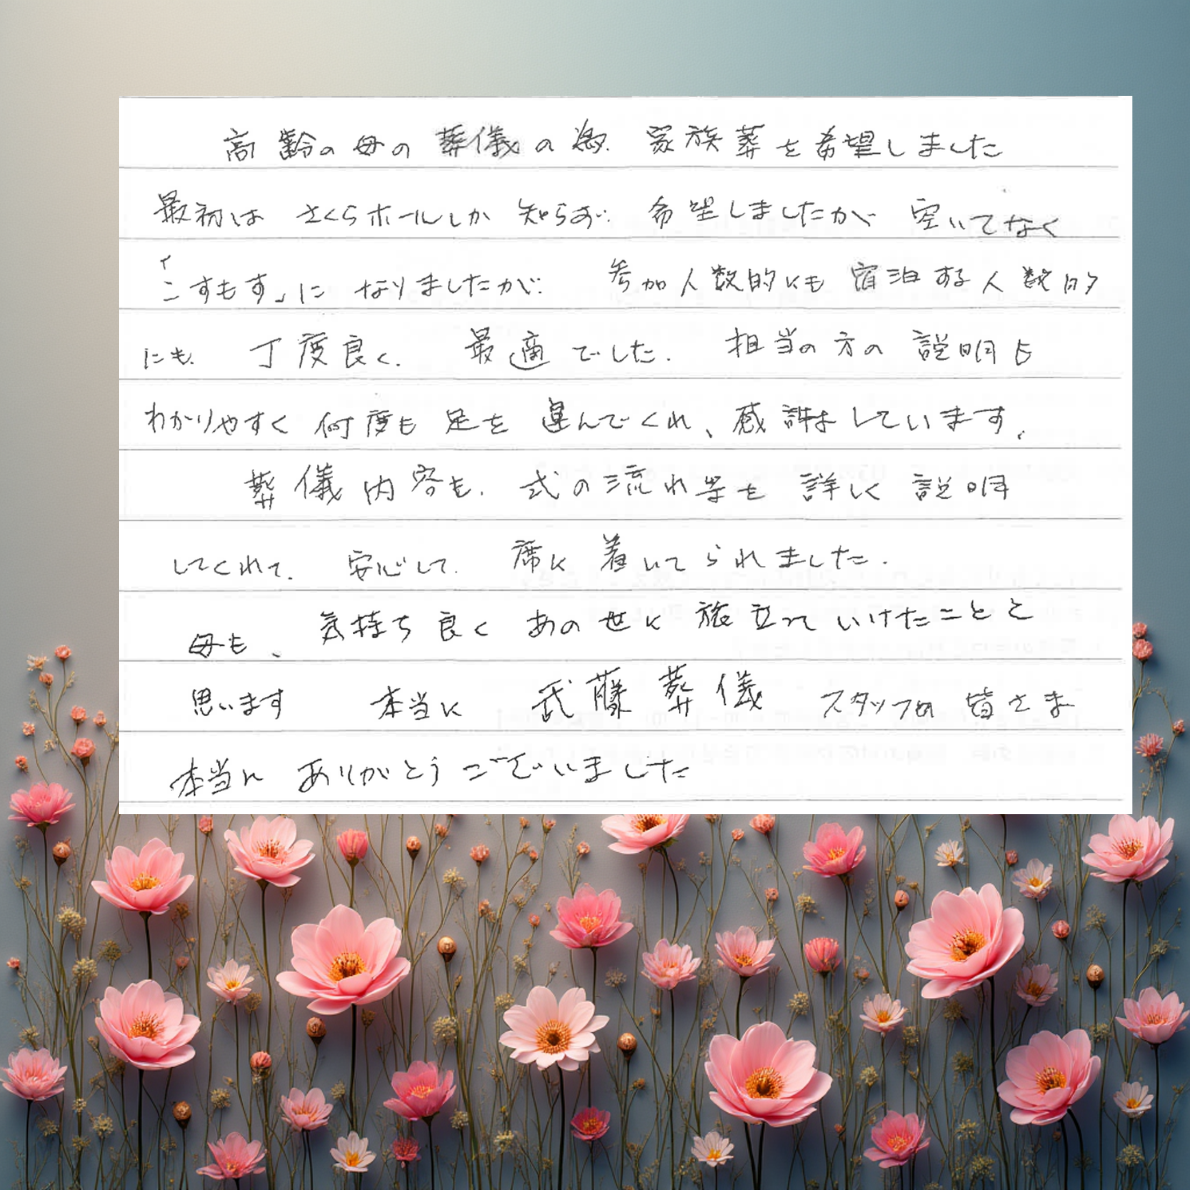 高齢の母の葬儀の為 家族葬を希望しました
最初は さくらホールしか 知らず 希望しましたが 空いてなく
「こすもす」に なりましたが 参加人数的にも 宿泊する人数的
にも 丁度良く 最適でした. 担当の方の 説明も
わかりやすく 何度も 足を 運んでくれ、感謝しています。
葬儀内容も、式の流れ等を 詳しく 説明
してくれて、 安心して 席に 着いてられました.
母も、 気持ち良く あの世に 旅立っていけたことと
思います 本当に 武藤葬儀 スタッフの 皆さま
本当に ありがとうございました